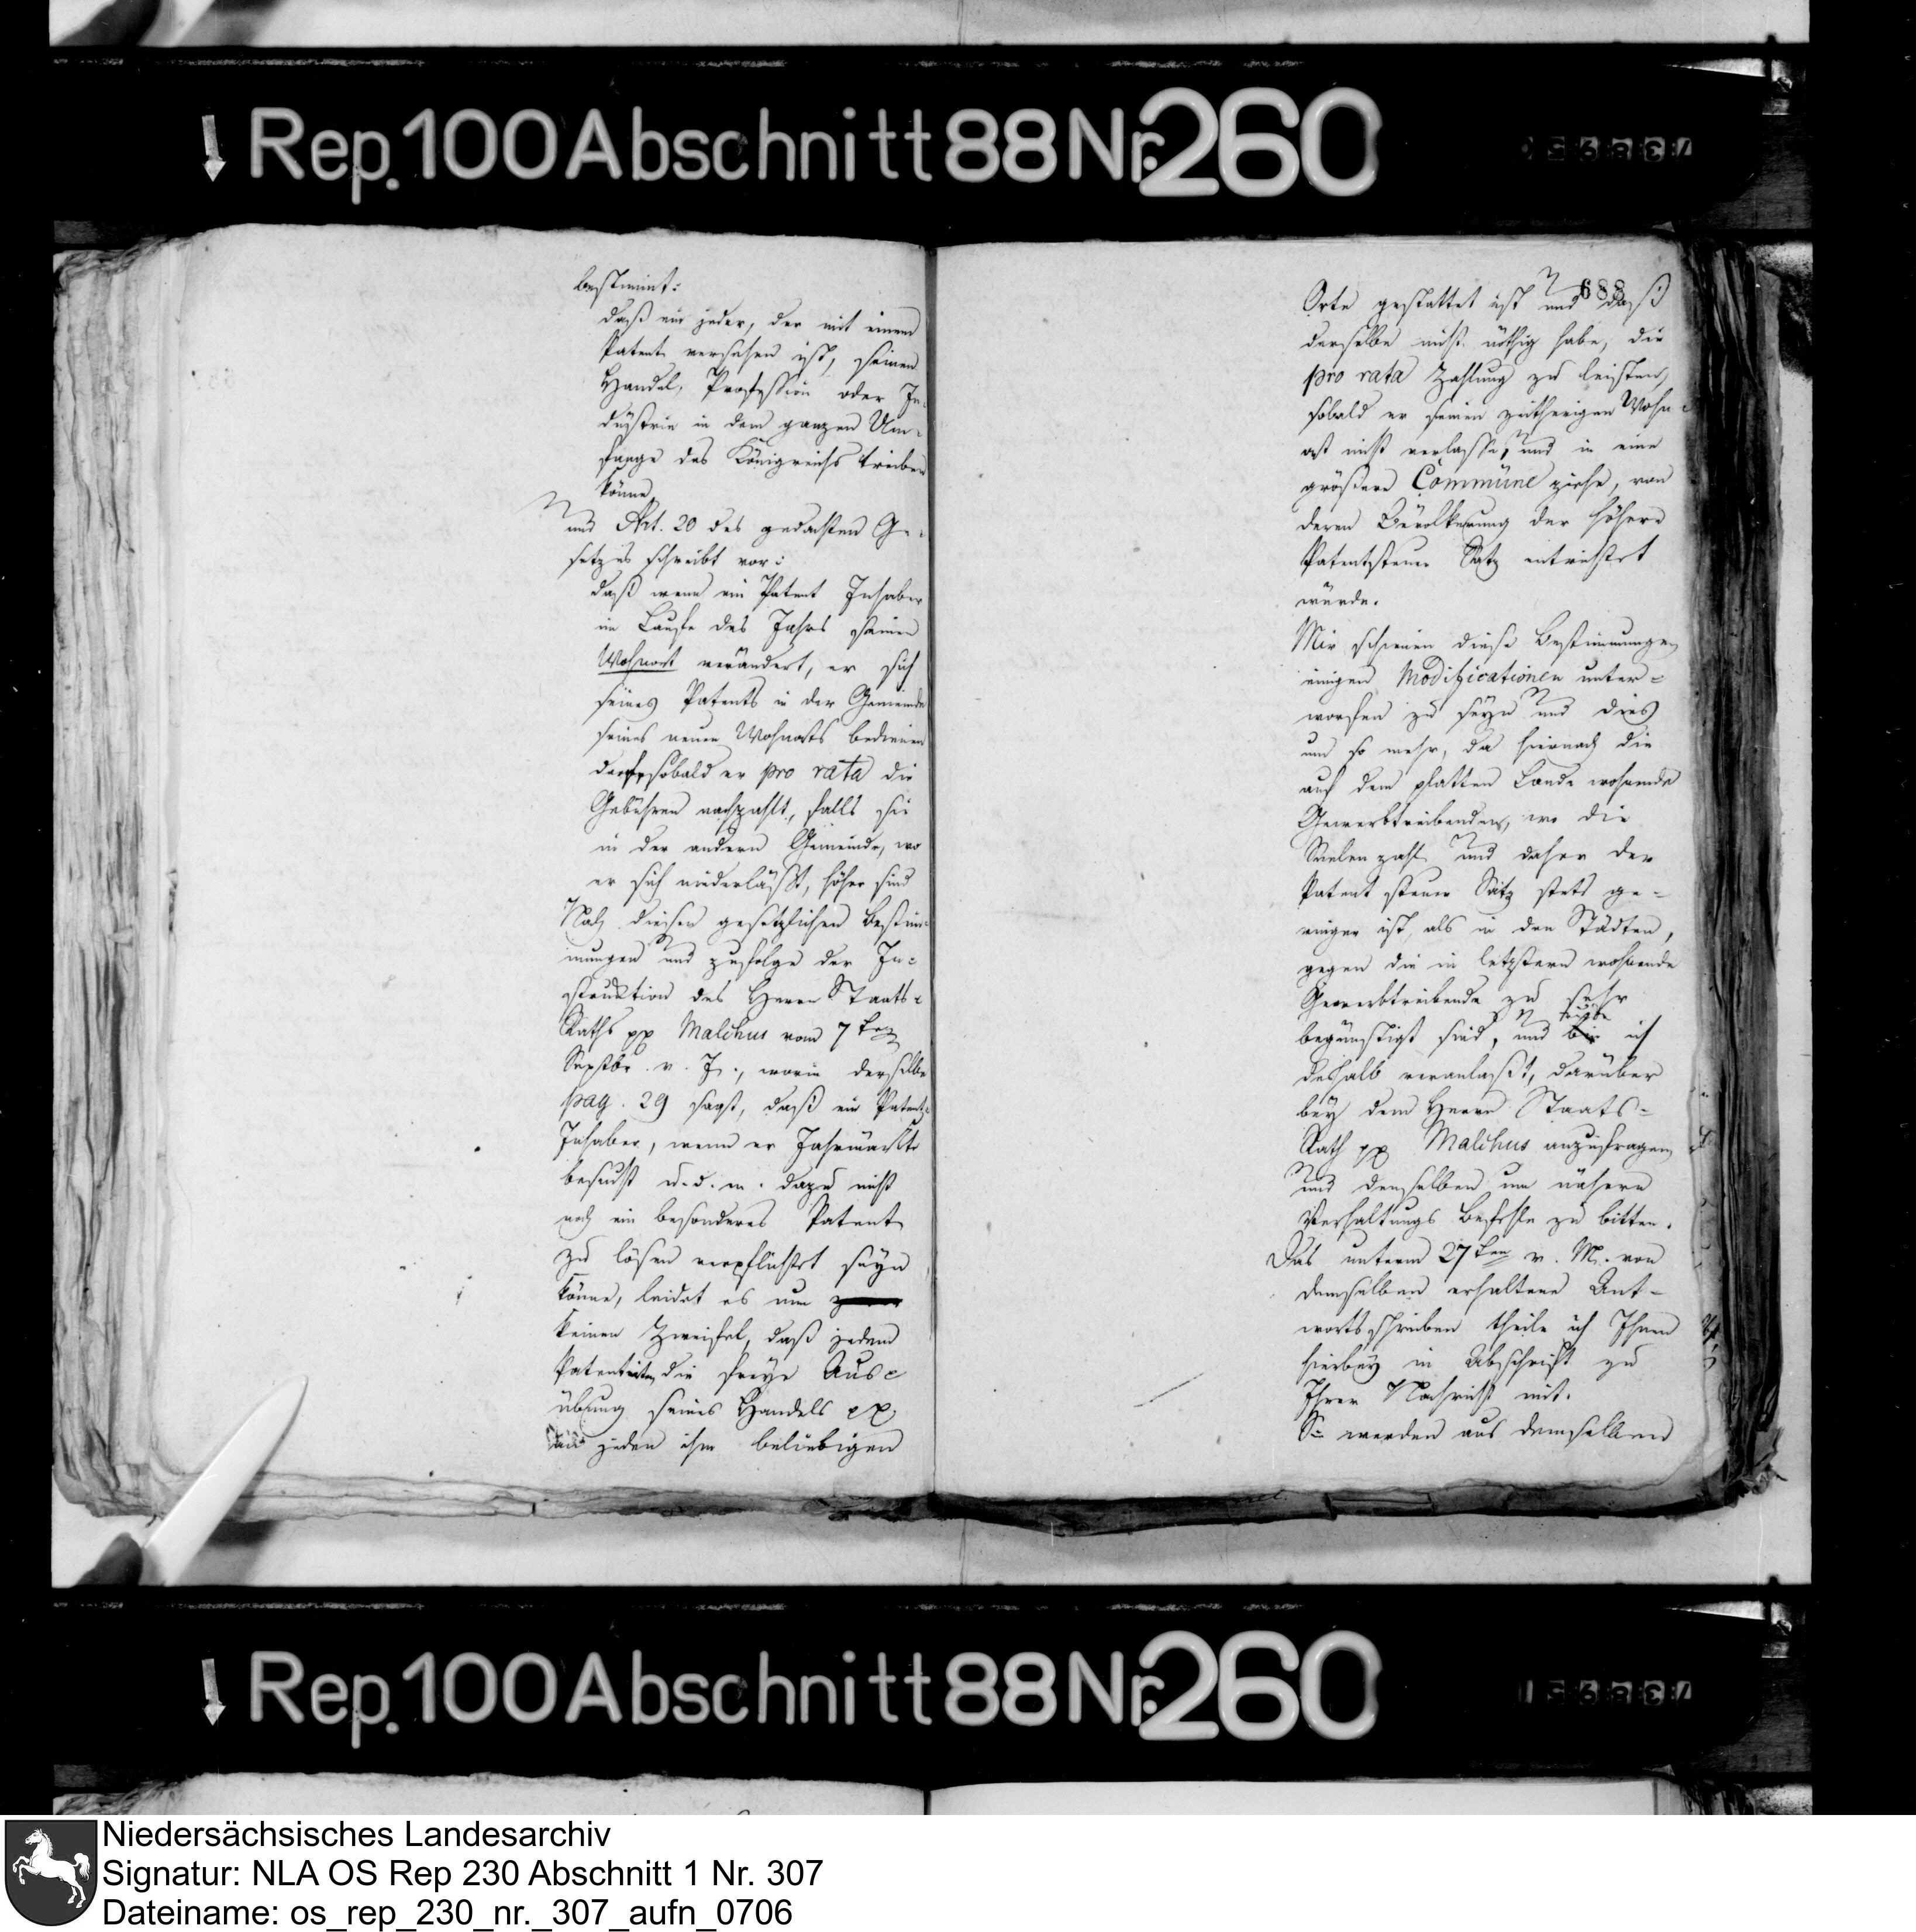 Rep. 100 Abschnitt 88 Nr. 260
bestimmt:
daß ein jeder, der mit einem
Patent versehen ist, seinen
Handel, Profession oder In-
dustrie in dem ganzen Um-
fange des Königreichs treiben
könne,
und Art. 20 des gedachten Ge-
setzes schreibt vor:
daß wenn ein Patent Inhaber
im Laufe des Jahrs seinen
Wohnort verändert, er sich
seines Patents in der Gemeinde
seines neuen Wohnorts bedienen
darf, sobald er pro rata die
Gebühren nachzahlt, falls sie
in der andern Gemeinde, wo
er sich niederläßt, höher sind
Nach diesen gesetzlichen Bestim-
mungen und zufolge der In-
struktion des Herrn Staats-
Raths pp Malchus vom 7ten
Septbr. v. J., worin derselbe
pag. 29 sagt, daß ein Patent-
Inhaber, wenn er Jahrmärkte
besucht u. d. m. dazu nicht
noch ein besonderes Patent
zu lösen verpflichtet seyn
könne, leidet es nun
keinen Zweifel, daß jedem
Patentirten die freye Aus-
übung seines Handels pp.
an jeden ihm beliebigen
688
Orte gestattet ist und daß
derselbe nicht nöthig habe, die
pro rata Zahlung zu leisten,
sobald er seinen zeitherigen Wohn-
ort nicht verlasse, und in eine
größere Commüne ziehe, von
deren Bevölkerung der höhere
Patentsteuer Satz entrichtet
würde.
Mir schienen diese Bestimmungen
einigen Modificationen unter-
worfen zu seyn und dies
um so mehr, da hiernach die
auf dem platten Lande wohnende
Gewerbtreibenden, wo die
Seelenzahl und daher der
Patentsteuer Satz stets ge-
ringer ist, als in den Städten,
gegen die in letztern wohnende
Gewerbtreibende zu sehr
begünstigt sind, und bin ich
deshalb veranlaßt, darüber
bey dem Herrn Staats-
Rath pp Malchus anzufragen
und denselben um nähere
Verhaltungs Befehle zu bitten.
Das unterm 27ten v. M. von
demselben erhaltene Ant-
wortsschreiben theile ich Ihnen
hierbey in Abschrift zu
Ihrer Nachricht mit.
Sie werden aus demselben
Rep. 100 Abschnitt 88 Nr. 260
Niedersächsisches Landesarchiv
Signatur: NLA OS Rep 230 Abschnitt 1 Nr. 307
Dateiname: os_rep_230_nr._307_aufn_0706